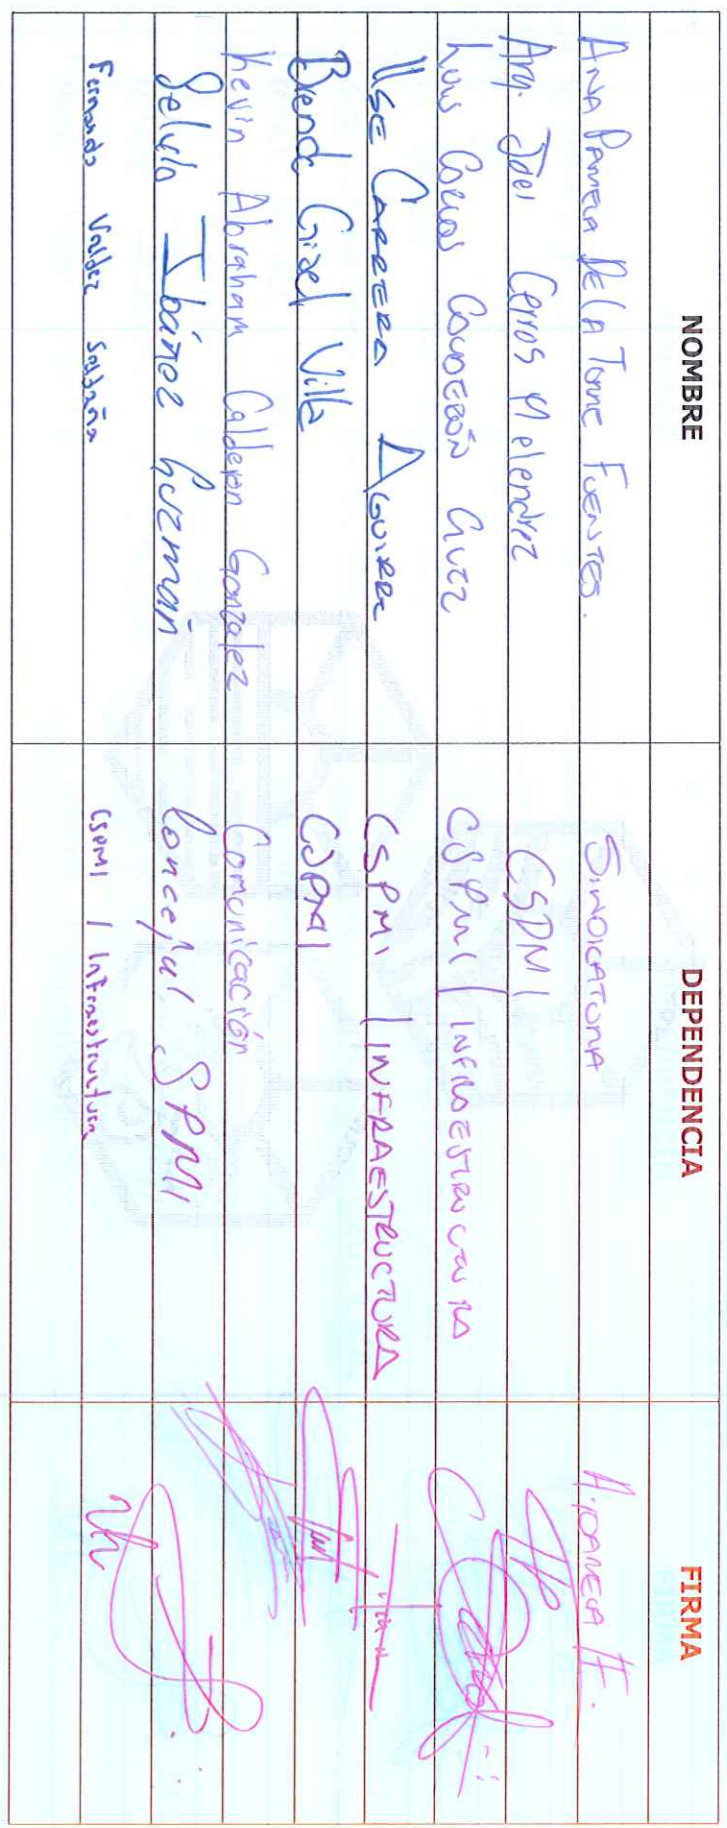 NOMBRE DEPENDENCIA FIRMA
ANA PAMELA DE LA TORRE FUENTES. SINDICATURA
Arq. Joel Cerros Melendrez CSPM
Luis Carlos CALDERÓN GUTZ CSPM / INFRAESTRUCTURA
ILSE CARRERA AGUIRRE CSPM / INFRAESTRUCTURA
Brenda Gizel Villa CSPM
Kevin Abraham Calderon Gonzalez Comunicación
Ibáñez Guzmán Concejal SPM
Fernando Valdez Saldaña CSPM / Infraestructura